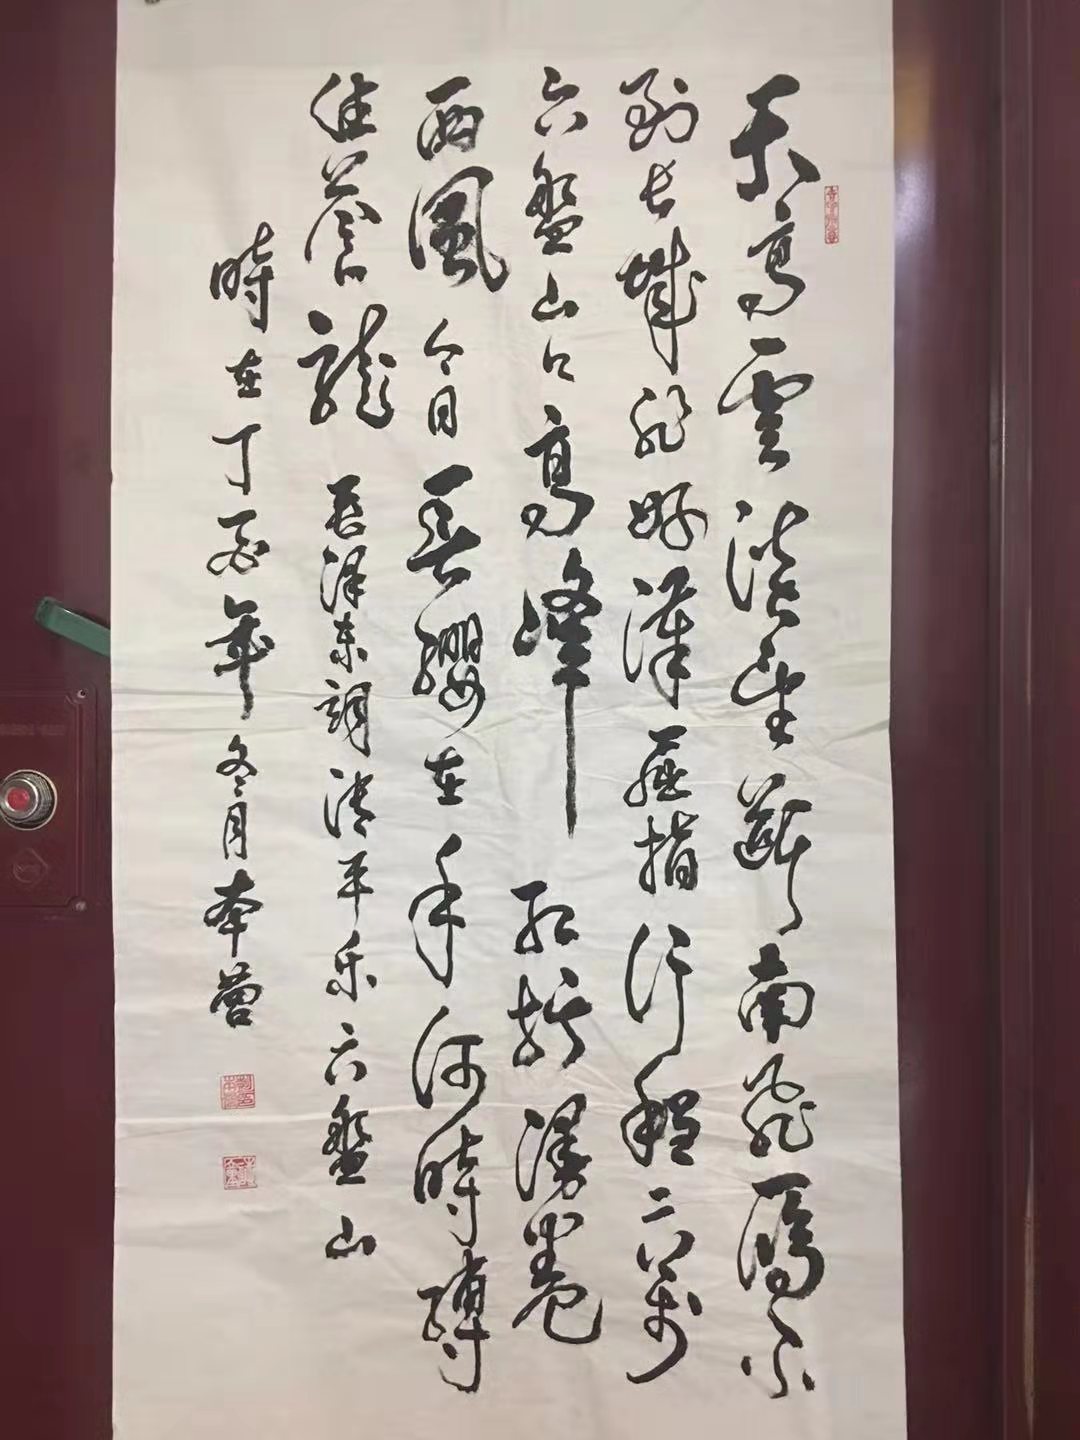 天高雲淡望斷南飛雁不
到長城非好漢屈指行程二万
六盤山上高峰紅旗漫卷
西風今日長纓在手何時縛
住蒼龍
毛泽东詞清平乐六盤山
時在丁酉年冬月奉曾